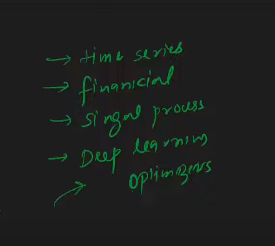 → time series
→ finanicial
→ singal process
→ Deep learning
→ optimizers